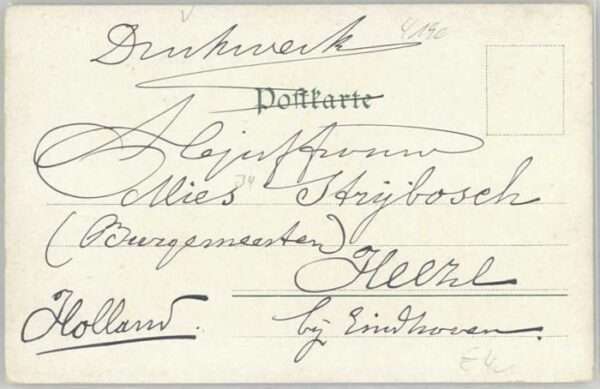 Drukwerk
Postkarte
Mejuffrouw
Mies Strijbosch
(Burgemeester)
Heeze
Holland. bij Eindhoven.